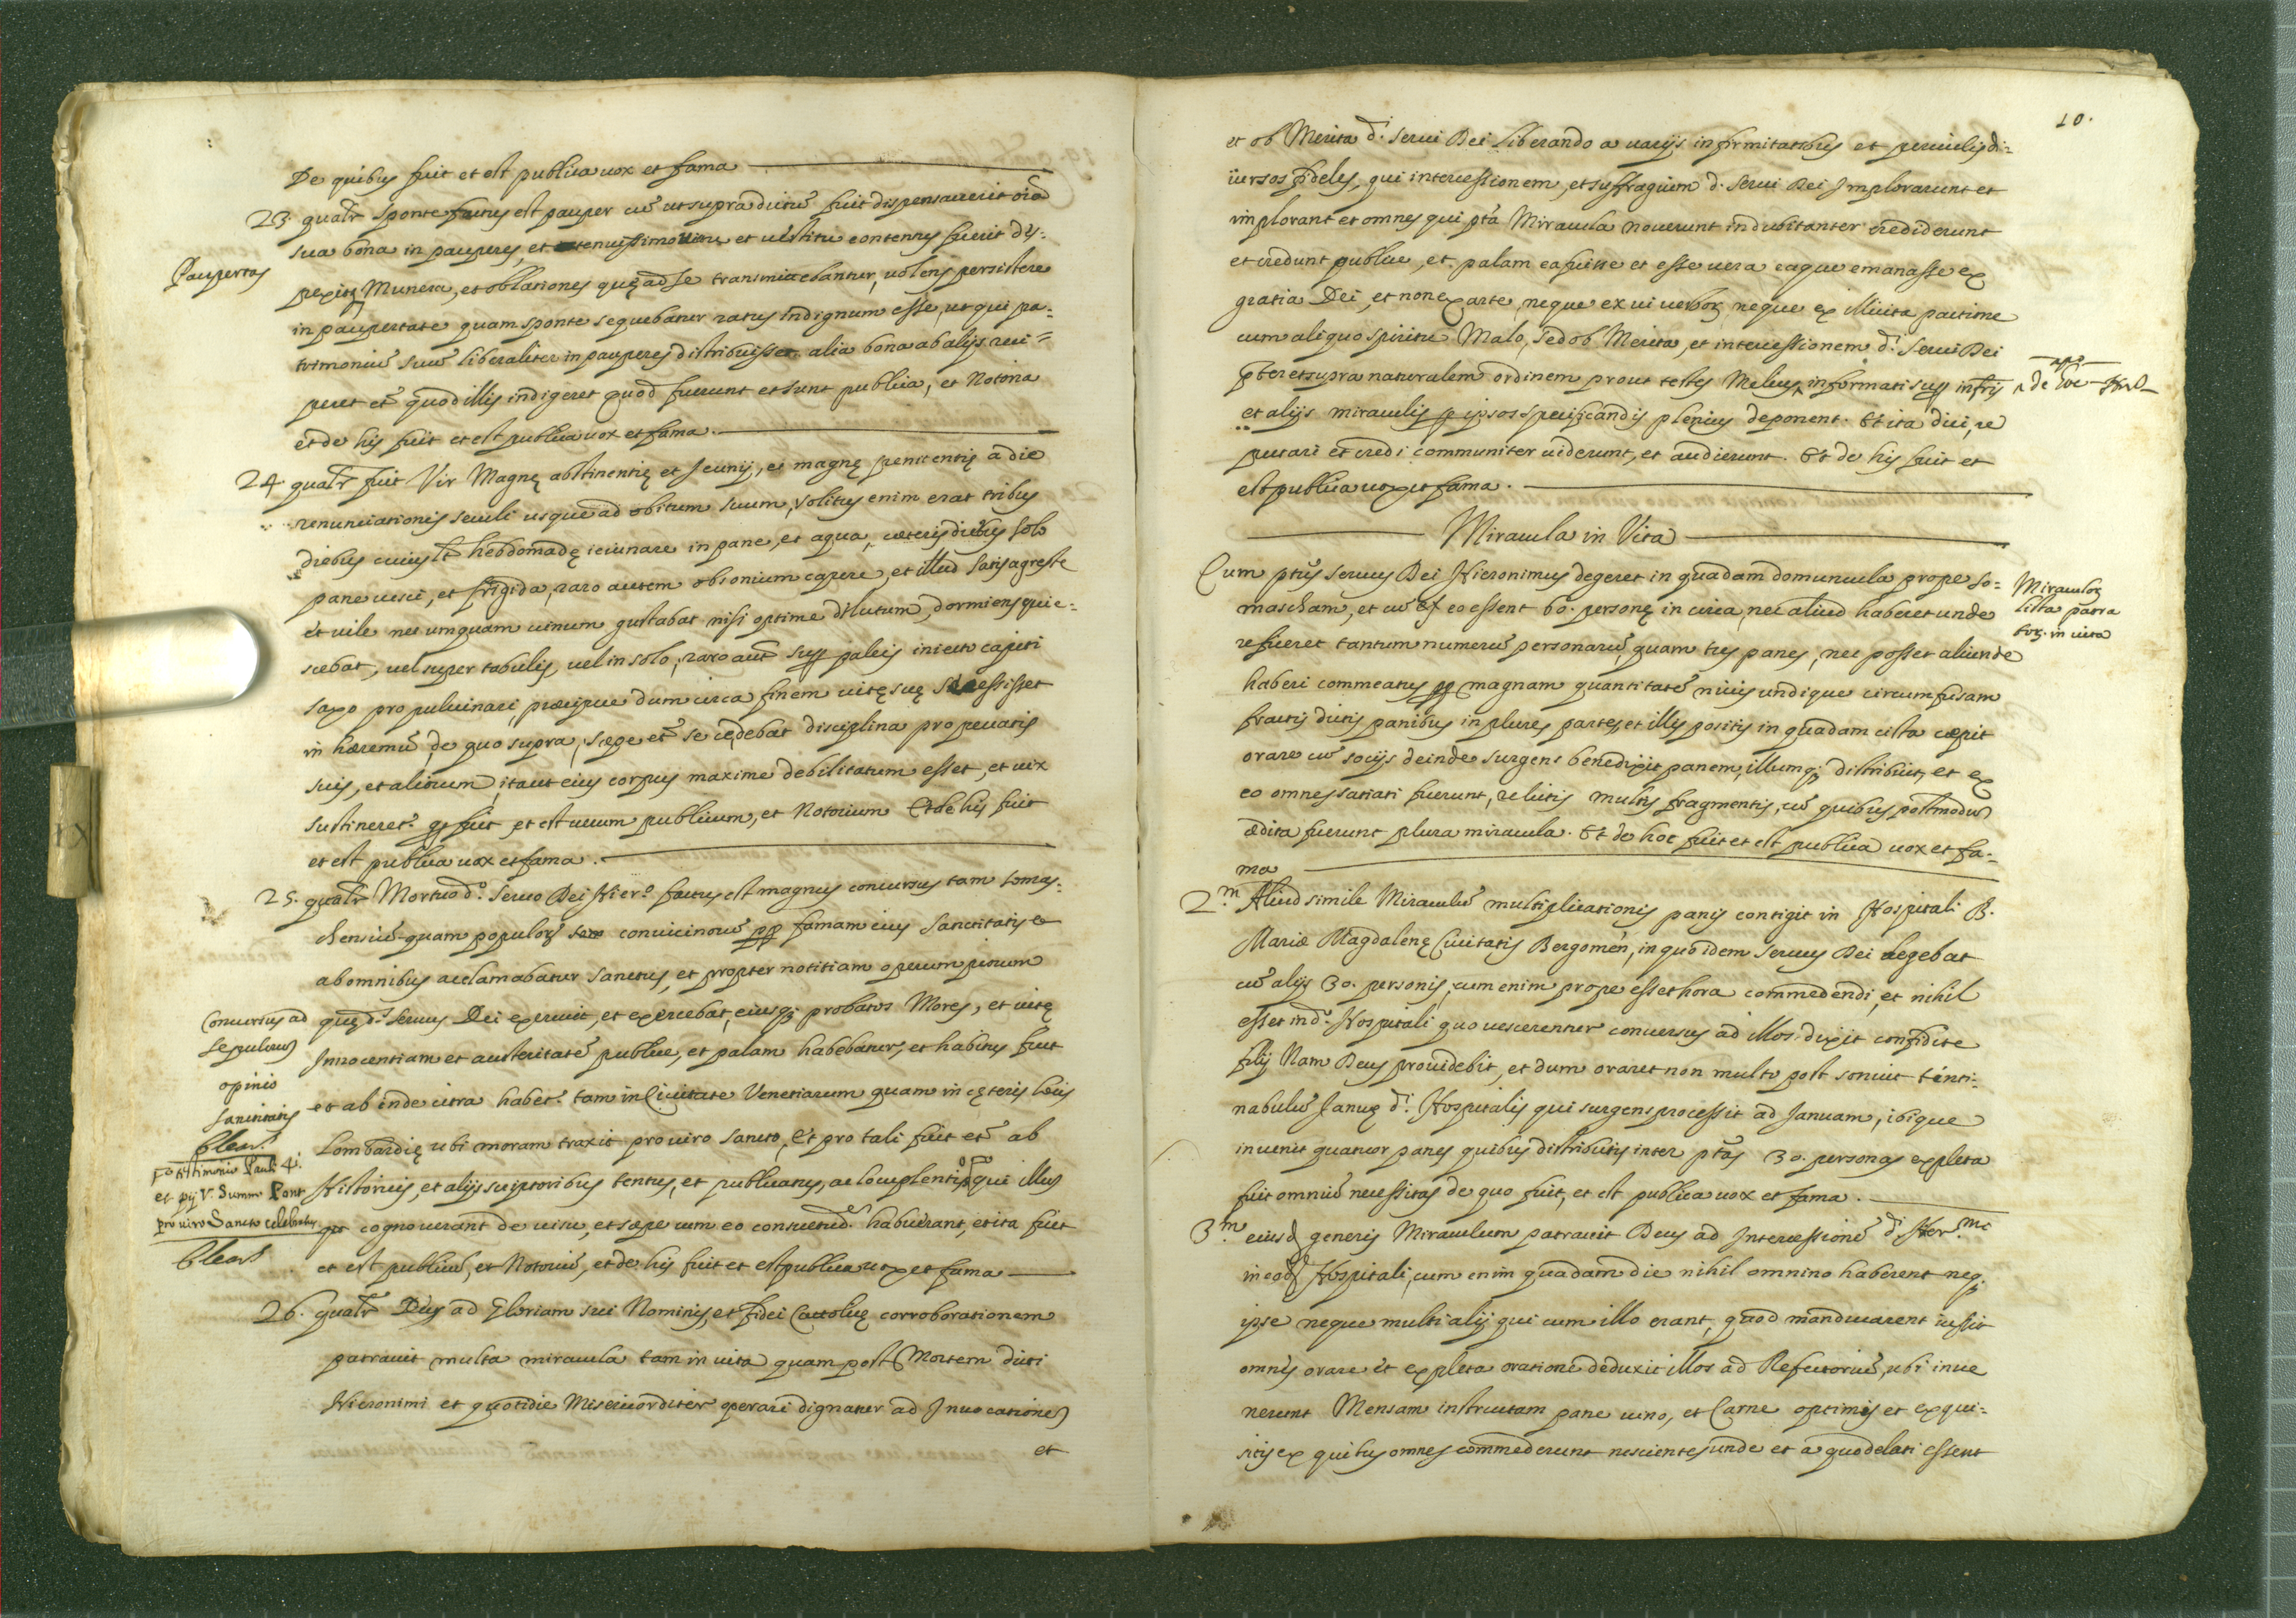 De quibus fuit et est publica uox et fama
23. qualr̃ sponte factus est pauper cũ ut supra dictũ fuit dispensauerit oĩa
sua bona in pauperes, et tenuissimo uictu et uestitu contentus fuerit des-
Paupertas
pexitq; Munera, et oblationes quę ad se transmictebantur, uolens persistere
in paupertate quam sponte sequebatur ratus Indignum esse, ut qui pa-
trimoniũ suũ liberaliter in pauperes distribuisset alia bona ab alijs reci=
peret et quod illis indigeret quod fuerunt et sunt publica, et Notoria
et de his fuit et est publica uox et fama.
24. qualr̃ fuit Vir Magnę abstinentię et Jeunij, et magnę penitentię a die
renunciationis seculi usque ad obitum suum, solitus enim erat tribus
diebus cuiuslt hebdomadę ieiunare in pane, et aqua, cæteris diebus solo
pane uesci, et frigida, raro autem obsonium capere, et illud satis agreste
et uile nec umquam uinum gustabat nisi optime dilutum, dormiens quie-
scebat, uel super tabulis, uel in solo, raro aut suꝑ paleis iniecto capiti
saxo pro puluinari, præcipue dum circa finem uitę suę secessisset
in hæremũ, de quo supra, sæpe et se cędebat disciplina pro peccatis
suis, et aliorum, ita ut eius corpus maxime debilitatum esset, et uix
sustineret. qd fuit et est uerum publicum, et Notorium Et de his fuit
et est publica uox et fama.
25. qualr̃ Mortuo d.º Seruo Dei Hier.º factus est magnus concursus tam Somas-
chensiũ quam populor conuicinorũ ꝓꝑ famam eius Sanctitatis et
ab omnibus acclamabatur Sanctus, et propter notitiam operum piorum
Concursus ad
Sepulcrũ
quę d.s Seruus Dei exercuit, et exercebat, eiusq; probatos Mores, et uitę
Innocentiam et austeritatẽ publice, et palam habebatur, et habitus fuit
opinio
Sanctitatis
et ab inde citra habet. tam in Ciuitate Venetiarum quam in cęteris locis
Lombardię ubi moram traxit pro uiro Sancto, Et pro tali fuit et ab
testimonio Pauli 4.
et pij V. Summ. Pont.
pro uiro Sancto celebratus
Historicis, et alijs scriptoribus tentus, et publicatus, ac locupletis qui illũ
cognouerant de uisu, et sæpe cum eo consuetud.em habuerant, et ita fuit
et est publicũ, et Notoriũ, et de his fuit et est publica uox et fama
26. qualr̃ Deus ad Gloriam sui Nominis, et fidei Cattolicę corroborationem
patrauit multa miracula tam in uita quam post Mortem dicti
Hieronimi et quotidie Misericorditer operari dignatur ad Inuocationẽ
et
10.
et ob Merita d.i Serui Dei liberando a uarijs infirmitatibus et periculis di=
uersos fideles, qui intercessionem, et suffragium d. Serui Dei Implorarunt et
implorant et omnes qui pta Miracula nouerunt indubitanter crediderunt
et credunt publice, et palam ea fuisse et esse uera eaque emanasse ex
gratia Dei, et non ex arte, neque ex ui uerbor, neque ex illicita pactione
cum aliquo spiritu Malo, sed ob Merita, et intercessionem d.i Serui Dei
pter et supra naturalem ordinem prout testes Melius informati suꝑ infrijs
et alijs miraculis ꝑ ipsos specificandis plenius deponent. Et ita dici, re
putari et credi communiter uiderunt, et audierunt. Et de his fuit et
est publica uox et fama.
Miracula in Vita
Cum ptus Seruus Dei Hieronimus degeret in quadam domuncula prope So=
Miraculor
lista patra
tor. in uita
mascham, et cũ eo essent 60. personę in circa, nec aliud haberet unde
reficeret tantum numerũ personarũ, quam tres panes, nec posset aliunde
haberi commeatus ꝓꝑ magnam quantitatẽ niuis undique circumfusam
fractis dictis panibus in plures partes, et illis positis in quadam cista cæpit
orare cũ socijs deinde surgens benedixit panem, illumq; distribuit, et ex
eo omnes satiati fuerunt, relictis multis fragmentis, cũ quibus postmodũ
ædita fuerunt plura miracula. Et de hoc fuit et est publica uox et fa-
ma
2.m Aliud simile Miraculũ multiplicationis panis contigit in Hospitali B.
Mariæ Magdalenę Ciuitatis Bergomen, in quo idem Seruus Dei degebat
cũ alijs 30. personis, cum enim prope esset hora commedendi, et nihil
esset in d.o Hospitali quo uescerentur conuersus ad illos dixit confidite
filij Nam Deus prouidebit, et dum oraret non multo post sonuit tinti-
nabulũ Januę d.i Hospitalis qui surgens processit ad Januam, ibique
inuenit quatuor panes quibus distributis inter ptas 30. personas expleta
fuit omniũ necessitas de quo fuit, et est publica uox et fama.
3.m eiusd generis Miraculum patrauit Deus ad Intercessionẽ d.i Hier.mi
in eod Hospitali, cum enim quadam die nihil omnino haberent neq.
ipse neque multi alij qui cum illo erant, quod manducarent iussit
omnes orare et expleta oratione deduxit illos ad Refectoriũ, ubi inue
nerunt Mensam instructam pane uino, et Carne optimis et exqui=
sitis ex quibus omnes commederunt nescientes unde et a quo delati essent